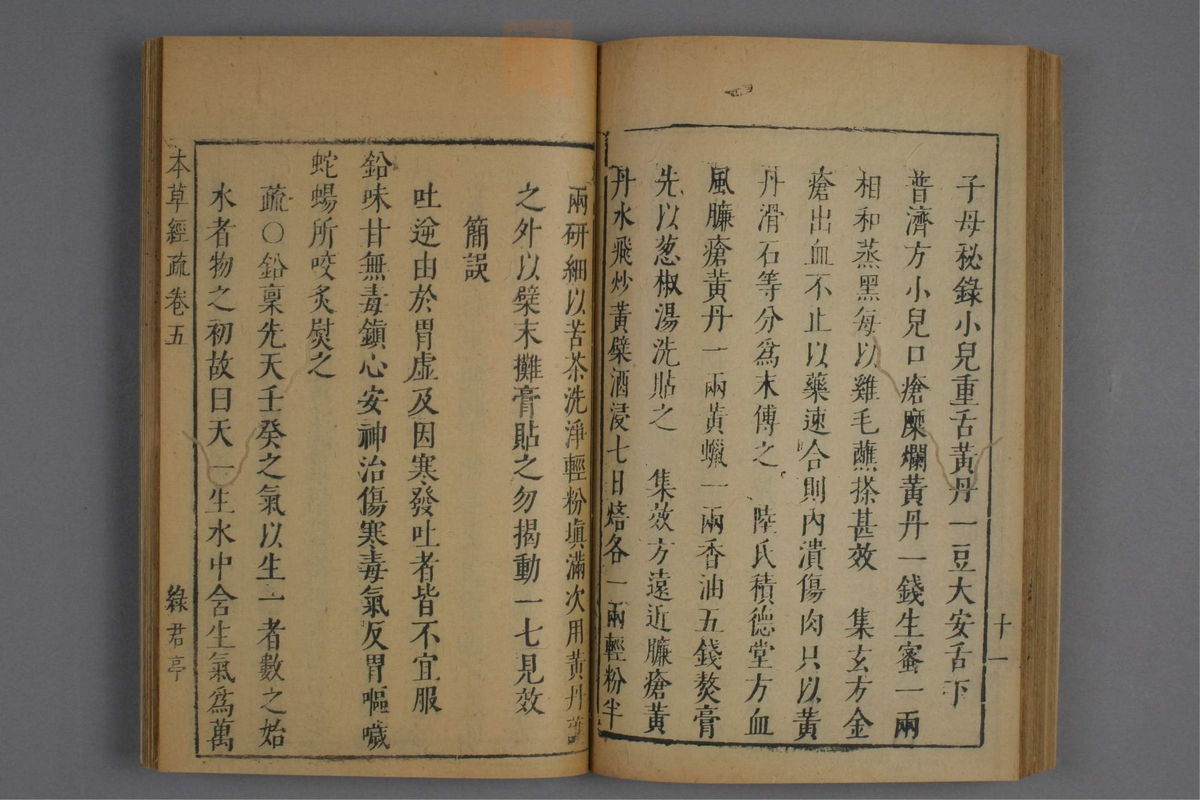 子母秘錄小兒重舌黃丹一豆大安舌下
普濟方小兒口瘡糜爛黃丹一錢生蜜一兩
相和蒸黑每以雞毛蘸搽甚效　集玄方金
瘡出血不止以藥速合則內潰傷肉只以黃
丹滑石等分爲末傅之　陸氏積德堂方血
風臁瘡黃丹一兩黃蠟一兩香油五錢熬膏
先以葱椒湯洗貼之　集效方遠近臁瘡黃
丹水飛炒黃蘗酒浸七日焙各一兩輕粉半
十一
兩研細以苦茶洗淨輕粉塡滿次用黃丹護
之外以蘗末攤膏貼之勿揭動一七見效
簡誤
吐逆由於胃虛及因寒發吐者皆不宜服
鉛味甘無毒鎮心安神治傷寒毒氣反胃嘔噦
蛇蜴所咬炙熨之
疏〇鉛稟先天壬癸之氣以生一者數之始
水者物之初故曰天一生水中含生氣爲萬
本草經疏卷五　綠君亭